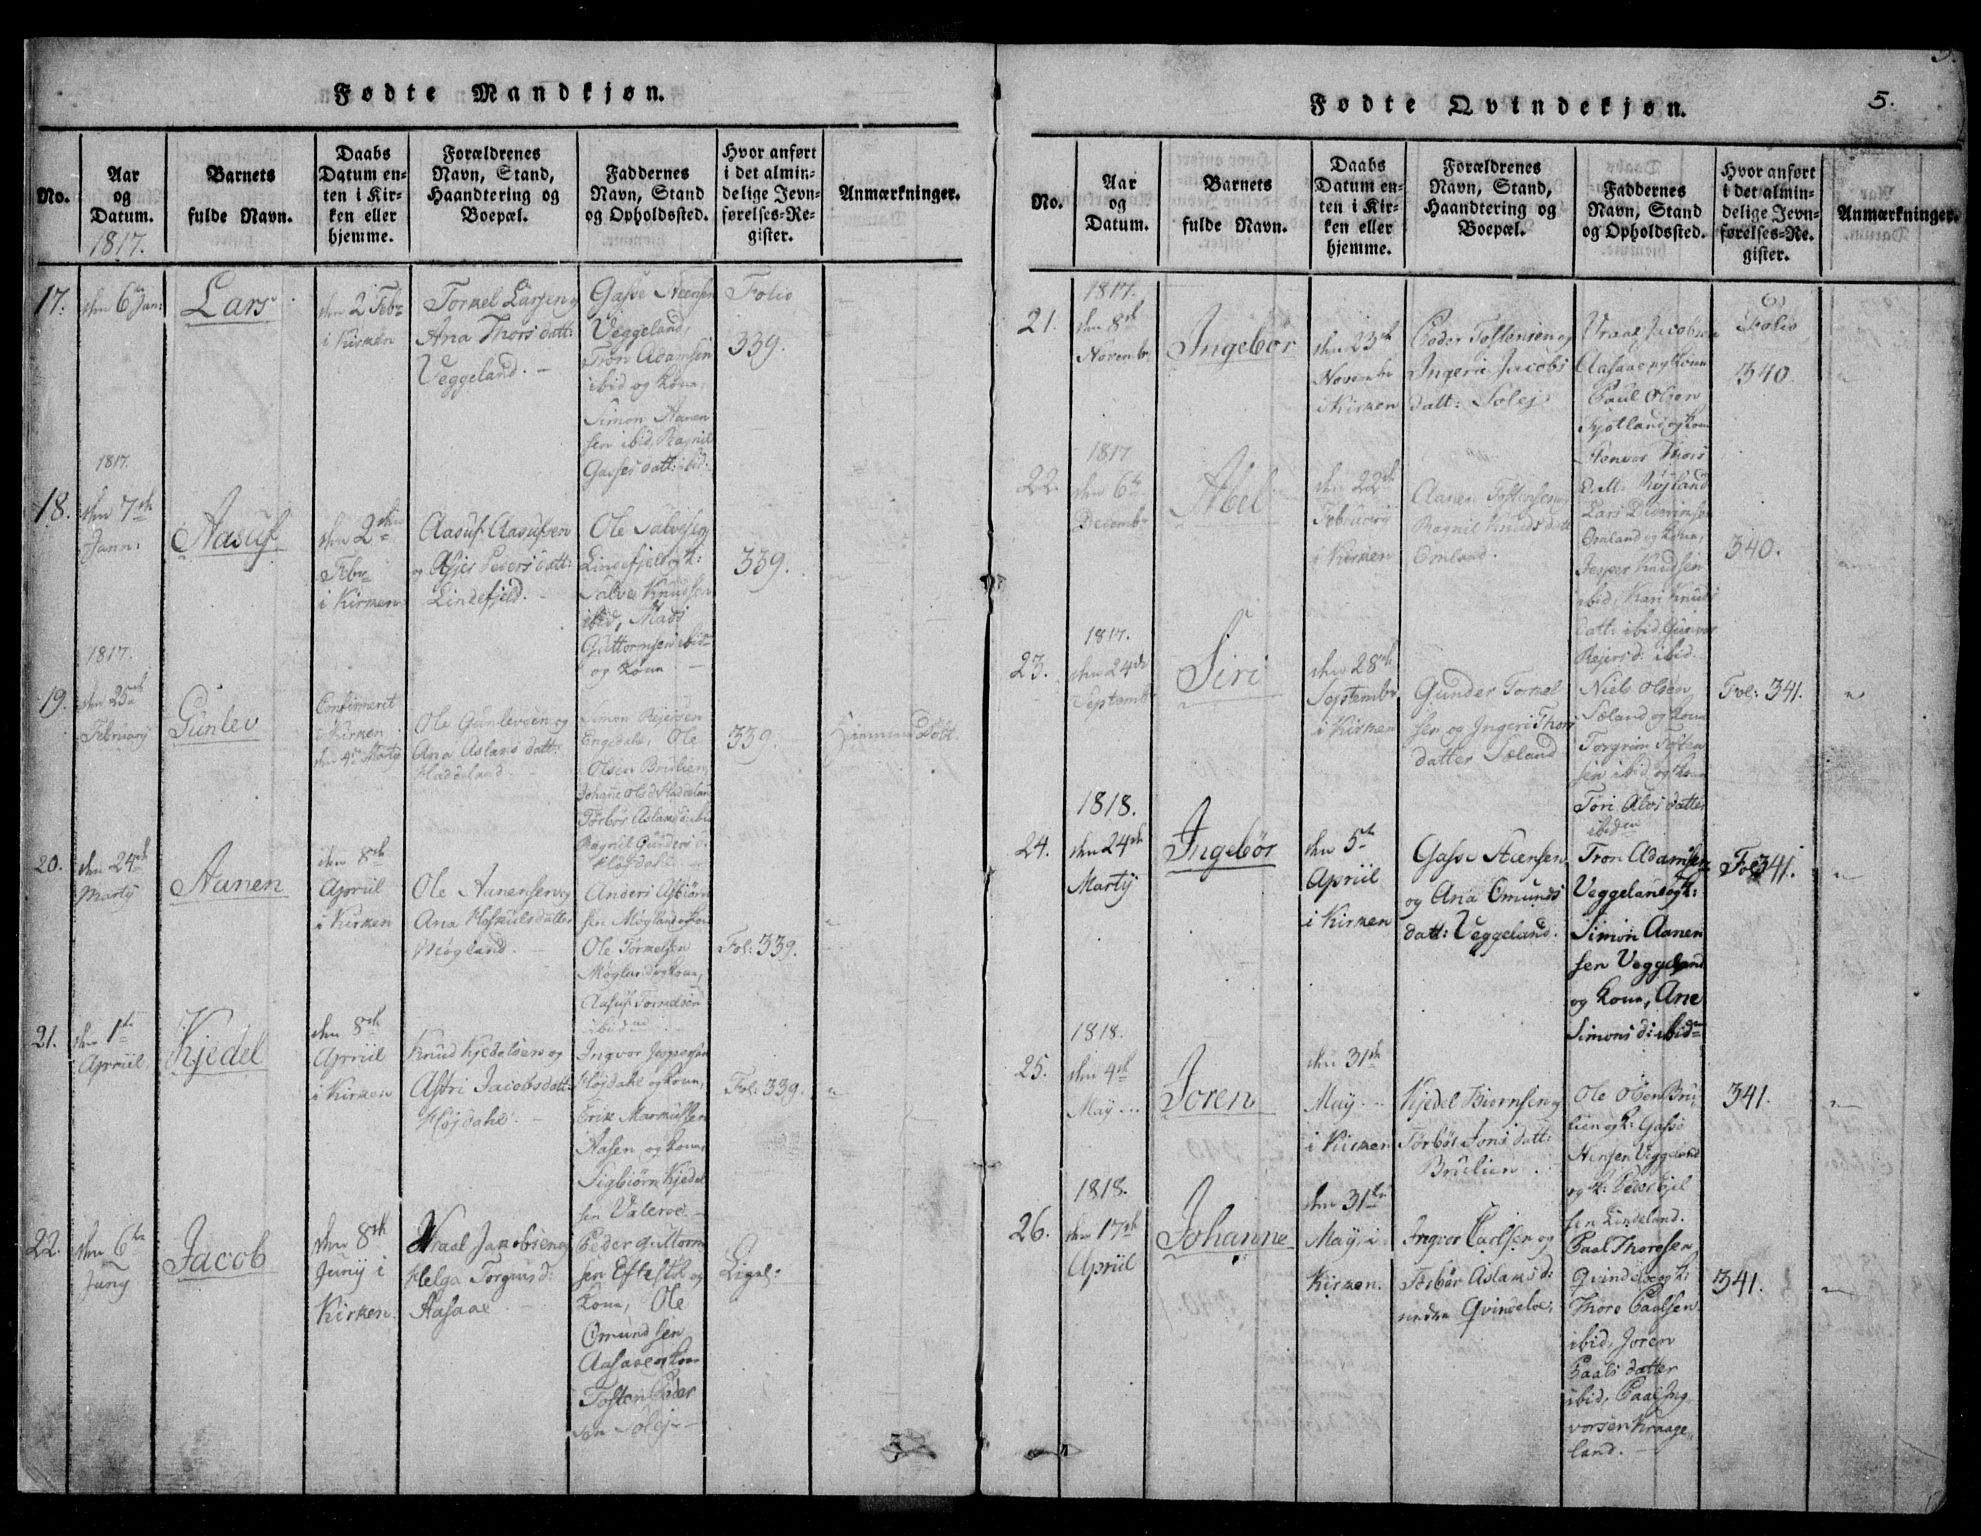 Fødte Mandkjøn.
No.
Aar
og
Datum.
1817.
Barnets
fulde Navn.
Daabs
Datum en-
ten i Kir-
ken eller
hjemme.
Forældrenes
Navn, Stand,
Haandtering og
Boepæl.
Faddernes
Navn, Stand
og Opholdssted.
Hvor anført
i det almin-
delige Jevn-
førelses-Re-
gister.
Anmærkninger.
17.
den 6te Jan:
Lars
den 2 Febr
i Kirken
Torkel Larsen og
Ana Thors datt:
Veggeland.
Gasse
Veggeland,
Tron Adamsen
ibid og Kona,
Simon Aanen
sen ibid, Ragnil
Gasses datt: ibid.
Folio
339.
1817.
18.
den 7de
Jann:
Aasuf
den 2den
Febr
i Kirken
Aasuf Aasufsen
og Asjer Peders datt:
Lindefjeld.
Ole Salvesen
Lindefjeld og K:
Salve Knudsen
ibid, Mads
Guttormsen ibid
og Kona
339.
1817.
19.
den 25de
February
Gunlev
Confirmeret
i Kirken
den 4de Marty
Ole Gunlevsen og
Ana Aslaks datt:
Hadeland.
Simon Rejersen
Engedahl, Ole
Olsen Brulien,
Johane Olsd
Torbor Aslaks d: ibid
Ragnil Gunders d:
Højdahl
339.
Hiemme Døbt
20.
den 24de
Marty
Aanen
den 8de
Apriil
i Kirken
Ole Aanensen og
Ana Hofkuls datter
Møgland.
Anders Asbiørn
sen Møgland og Kon
Ole Torkelsen
Møgland og Kona,
Aasuf Torkelsen
ibid
Fol: 339.
21.
den 1te
Apriil
Kjedel
den 8de
Apriil
i Kirken
Knud Kjedelsen og
Astri Jacobs datt:
Højdahl.
Ingvor Jespersen
Højdahl og Kona,
Erik Markussen
Aasen, og Kona,
Sigbiørn Kjedel
sen Valevæ.
Fol: 339.
22.
den 6te
Juny
Jacob
den 8de
Juny i
Kirken.
Vraal Jakobsen og
Helga Torgius d:
Aasaae.
Peder Guttorm
sen Eftestøl og
Kona, Ole
Omundsen
Aasaae og Kon
Tosten Peder
sen Solej
Ligel:
Fødte Qvindekjøn.
5.
No.
Aar
og
Datum.
Barnets
fulde Navn.
Daabs
Datum en-
ten i Kir-
ken eller
hjemme.
Forældrenes
Navn, Stand,
Haandtering og
Boepæl.
Faddernes
Navn, Stand
og Opholdssted.
Hvor anført
i det almin-
delige Jevn-
førelses-Re-
gister.
Anmærkninger.
1817.
21.
den 8de
Novembr
Ingebor
den 23de
Novembr
i Kirken
Peder Tostensen og
Ingeri Jacobs
datt: Solej
Vraal Jacobsen
Aasaae og Kona
Paul Olsen
Fjotland og Kon
Thors
Datt. Røjland
Folio
340.
1817
22.
den 6te
Decembr
Abel
den 22de
February
i Kirken
Aanen Tostensen og
Ragnil Knuds datt
Omland.
Lars Dideriksen
Omland og Kona,
Jesper Knudsen
ibid, Kari Knuds
datt: ibid, Gunvor
Rejers d: ibid.
340.
1817.
23.
den 24de
Septembr
Siri
den 28de
Septembr
i Kirken
Gunder Torkel
sen og Ingeri Thors
datter Sæland
Niels Olsen
Sæland og Kona
Torgrim Tosten
sen ibid, og Kona
Tori Alvs datter
ibiden
Fol: 341.
1818.
24.
den 24de
Marty
Ingebor
den 5te
Apriil
i Kirken
Gasse Steensen
og Ana Omunds
datt: Veggeland.
Tron Adamsen
Veggeland og K:
Simon Aanen
sen Veggeland
og Kona, Ane
Simons d: ibidn
Fol 341.
1818.
25.
den 4de
May
Joren
den 31te
May
i Kirken
Kjedel Biørnsen og
Torbor Jons datt:
Brulien.
Ole Olsen Bru
lien og K: Gasse
Veggeland
og K: Peder
sen Lindeland.
341.
1818.
26.
den 17de
Apriil
Johanne
den 31te
May i
Kirken.
Ingvor Carlsen og
Torbor Aslaks d:
nedre Qvindeloe,
Paal Thoresen
Qvindeloe og K:
Thore Paalsen
ibid, Joren
Paals datter
ibid, Paal Ing
vorsen Kraage
land.
341.